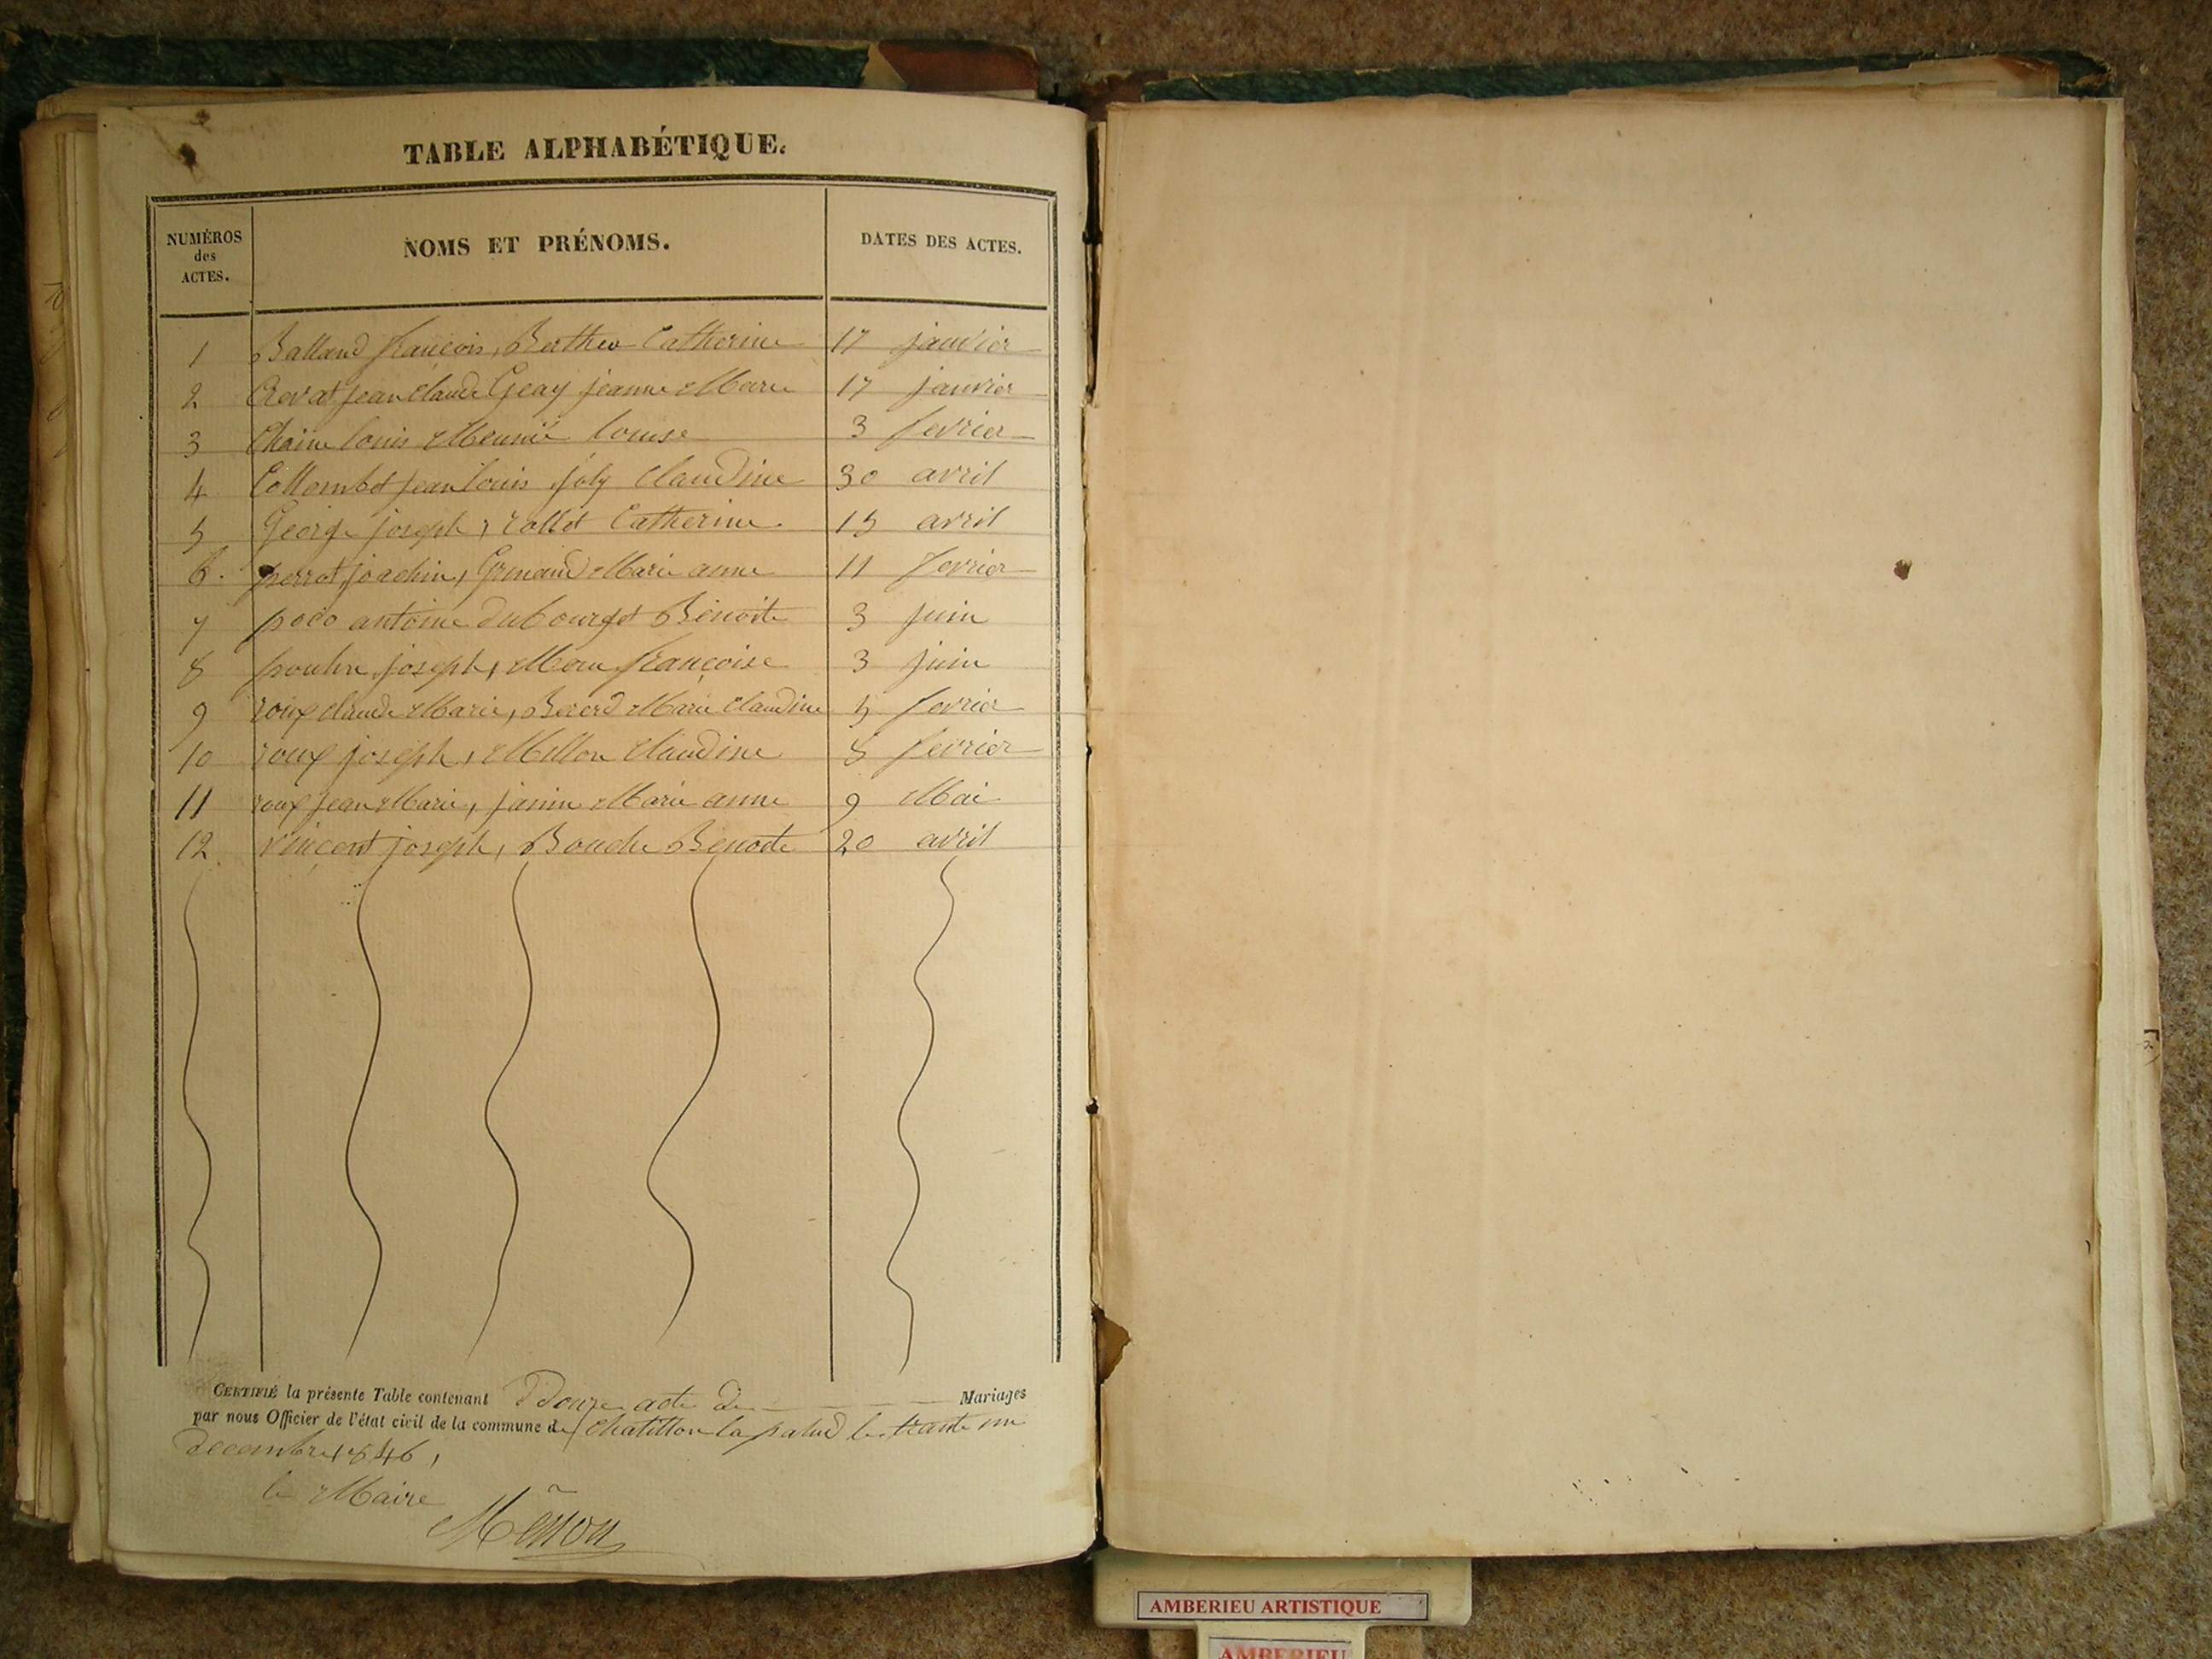 TABLE ALPHABÉTIQUE.
NUMÉROS des ACTES. NOMS ET PRÉNOMS. DATES DES ACTES.
1 Balland françois, Berthet Catherine 17 janvier
2 jean claude Geay jeanne Marie 17 janvier
3 Chaine louis Meunié louise 3 fevrier
4 Collombet jean louis joly Claudine 30 avril
5 George joseph, rollet Catherine 15 avril
6. perrot joachin, Marie anne 11 fevrier
7 antoine dubourget Benoite 3 juin
8 joseph, françoise 3 juin
9 roux claude Marie, Bererd Marie Claudine 5 fevrier
10 roux joseph, Millon Claudine 8 fevrier
11 roux jean Marie, janin Marie anne 9 Mai
12. Vincent joseph, Benoite 20 avril
CERTIFIÉ la présente Table contenant Douze acte de Mariages
par nous Officier de l'état civil de la commune de chatillon la palud le trante un
decembre 1846,
le Maire
AMBERIEU ARTISTIQUE
AMBERIEU